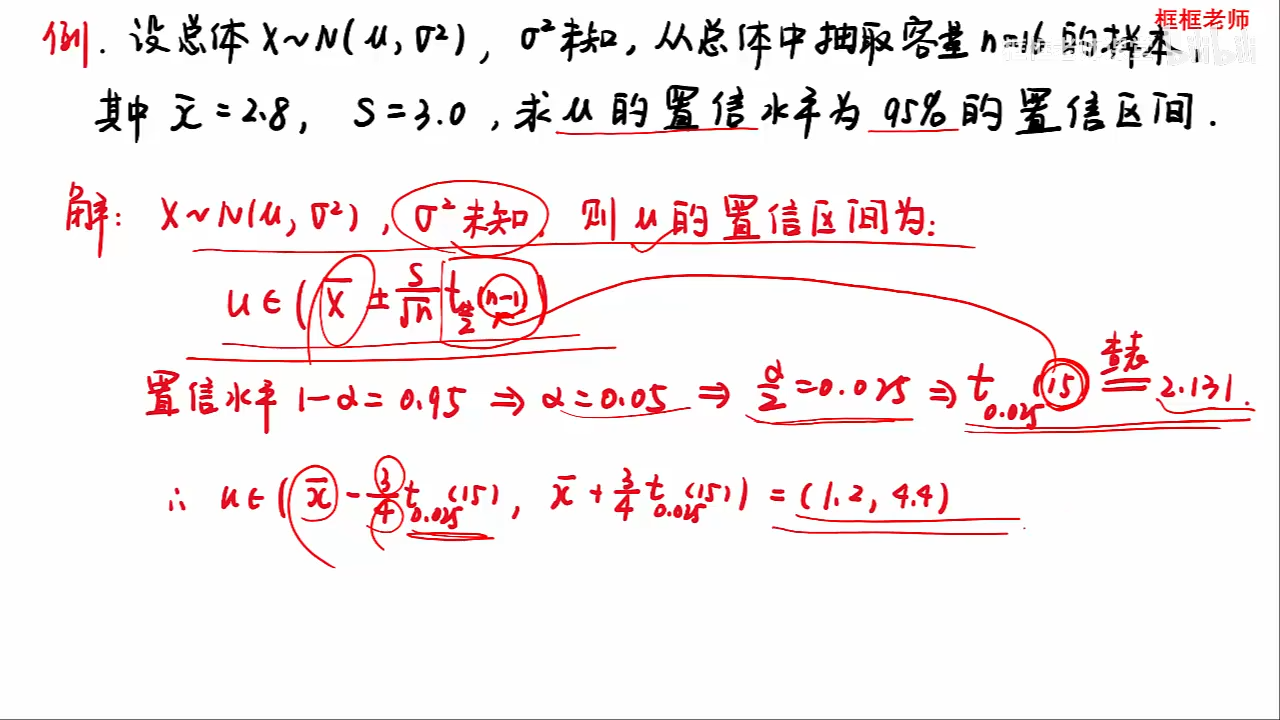 框框老师
例. 设总体 X~N(μ, σ²), σ²未知, 从总体中抽取容量 n=16 的样本,
其中 x̄=2.8, S=3.0, 求 μ 的置信水平为 95% 的置信区间.
解: X~N(μ, σ²), σ²未知, 则 μ 的置信区间为:
μ∈(X̄ ± S/√n t_{α/2}(n-1))
置信水平 1-α=0.95 ⇒ α=0.05 ⇒ α/2=0.025 ⇒ t_{0.025}(15) 查表 2.131.
∴ μ∈(x̄ - 3/4 t_{0.025}(15), x̄ + 3/4 t_{0.025}(15)) = (1.2, 4.4)